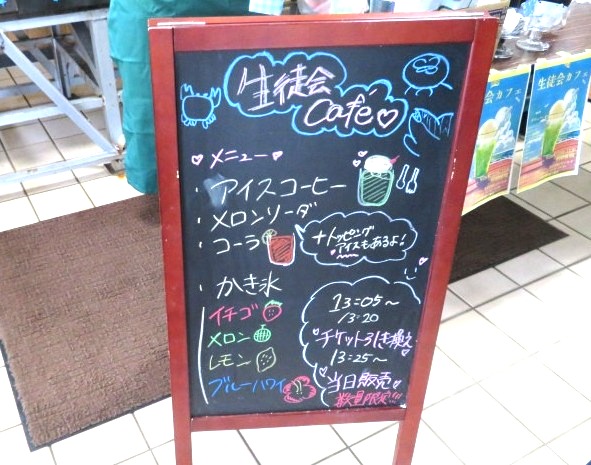 生徒会
Café♡
♡メニュー♡
・アイスコーヒー
・メロンソーダ
・コーラ
+トッピング
アイスもあるよ!
・かき氷
イチゴ
メロン
レモン
ブルーハワイ
13:05〜
13:20
チケット引き換え
13:25〜
当日販売
数量限定!!!
生徒会カフェ